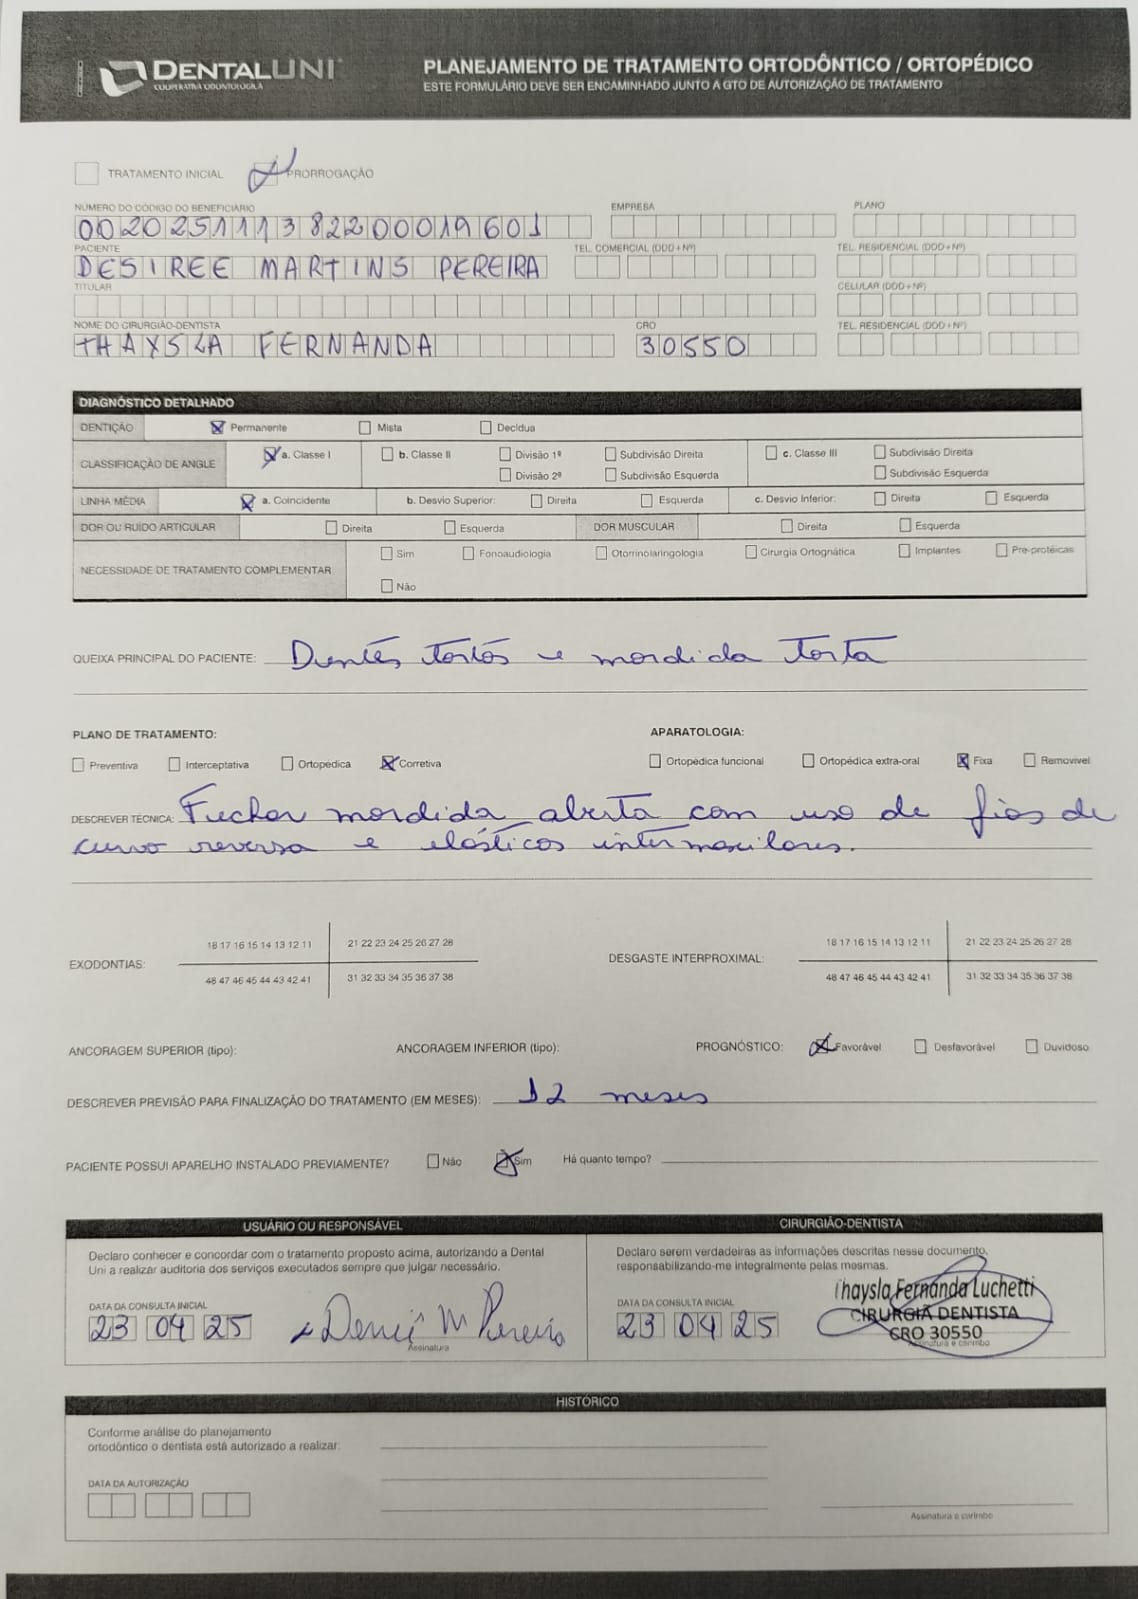 DENTALUNI
COOPERATIVA ODONTOLÓGICA
PLANEJAMENTO DE TRATAMENTO ORTODÔNTICO / ORTOPÉDICO
ESTE FORMULÁRIO DEVE SER ENCAMINHADO JUNTO A GTO DE AUTORIZAÇÃO DE TRATAMENTO
TRATAMENTO INICIAL PRORROGAÇÃO
NÚMERO DO CÓDIGO DO BENEFICIÁRIO EMPRESA PLANO
002025111382200019601
PACIENTE TEL. COMERCIAL (DDD+Nº) TEL. RESIDENCIAL (DDD+Nº)
DESIREE MARTINS PEREIRA
TITULAR CELULAR (DDD+Nº)
NOME DO CIRURGIÃO-DENTISTA CRO TEL. RESIDENCIAL (DDD+Nº)
THAYSLA FERNANDA 30550
DIAGNÓSTICO DETALHADO
DENTIÇÃO Permanente Mista Decídua
CLASSIFICAÇÃO DE ANGLE a. Classe I b. Classe II Divisão 1ª Subdivisão Direita c. Classe III Subdivisão Direita
Divisão 2ª Subdivisão Esquerda Subdivisão Esquerda
LINHA MÉDIA a. Coincidente b. Desvio Superior: Direita Esquerda c. Desvio Inferior: Direita Esquerda
DOR OU RUÍDO ARTICULAR Direita Esquerda DOR MUSCULAR Direita Esquerda
NECESSIDADE DE TRATAMENTO COMPLEMENTAR Sim Fonoaudiologia Otorrinolaringologia Cirurgia Ortognática Implantes Pré-protéicas
Não
QUEIXA PRINCIPAL DO PACIENTE: Dentes tortos e mordida torta
PLANO DE TRATAMENTO: APARATOLOGIA:
Preventiva Interceptativa Ortopédica Corretiva Ortopédica funcional Ortopédica extra-oral Fixa Removível
DESCREVER TÉCNICA: Fechar mordida aberta com uso de fios de
curva reversa e elásticos intermaxilares.
18 17 16 15 14 13 12 11 21 22 23 24 25 26 27 28 18 17 16 15 14 13 12 11 21 22 23 24 25 26 27 28
EXODONTIAS: DESGASTE INTERPROXIMAL:
48 47 46 45 44 43 42 41 31 32 33 34 35 36 37 38 48 47 46 45 44 43 42 41 31 32 33 34 35 36 37 38
ANCORAGEM SUPERIOR (tipo): ANCORAGEM INFERIOR (tipo): PROGNÓSTICO: Favorável Desfavorável Duvidoso
DESCREVER PREVISÃO PARA FINALIZAÇÃO DO TRATAMENTO (EM MESES): 12 meses
PACIENTE POSSUI APARELHO INSTALADO PREVIAMENTE? Não Sim Há quanto tempo?
USUÁRIO OU RESPONSÁVEL CIRURGIÃO-DENTISTA
Declaro conhecer e concordar com o tratamento proposto acima, autorizando a Dental Declaro serem verdadeiras as informações descritas nesse documento,
Uni a realizar auditoria dos serviços executados sempre que julgar necessário. responsabilizando-me integralmente pelas mesmas.
Thaysla Fernanda Luchetti
DATA DA CONSULTA INICIAL DATA DA CONSULTA INICIAL CIRURGIÃ DENTISTA
23 04 25 23 04 25 CRO 30550
Assinatura Assinatura e carimbo
HISTÓRICO
Conforme análise do planejamento
ortodôntico o dentista está autorizado a realizar:
DATA DA AUTORIZAÇÃO
Assinatura e carimbo